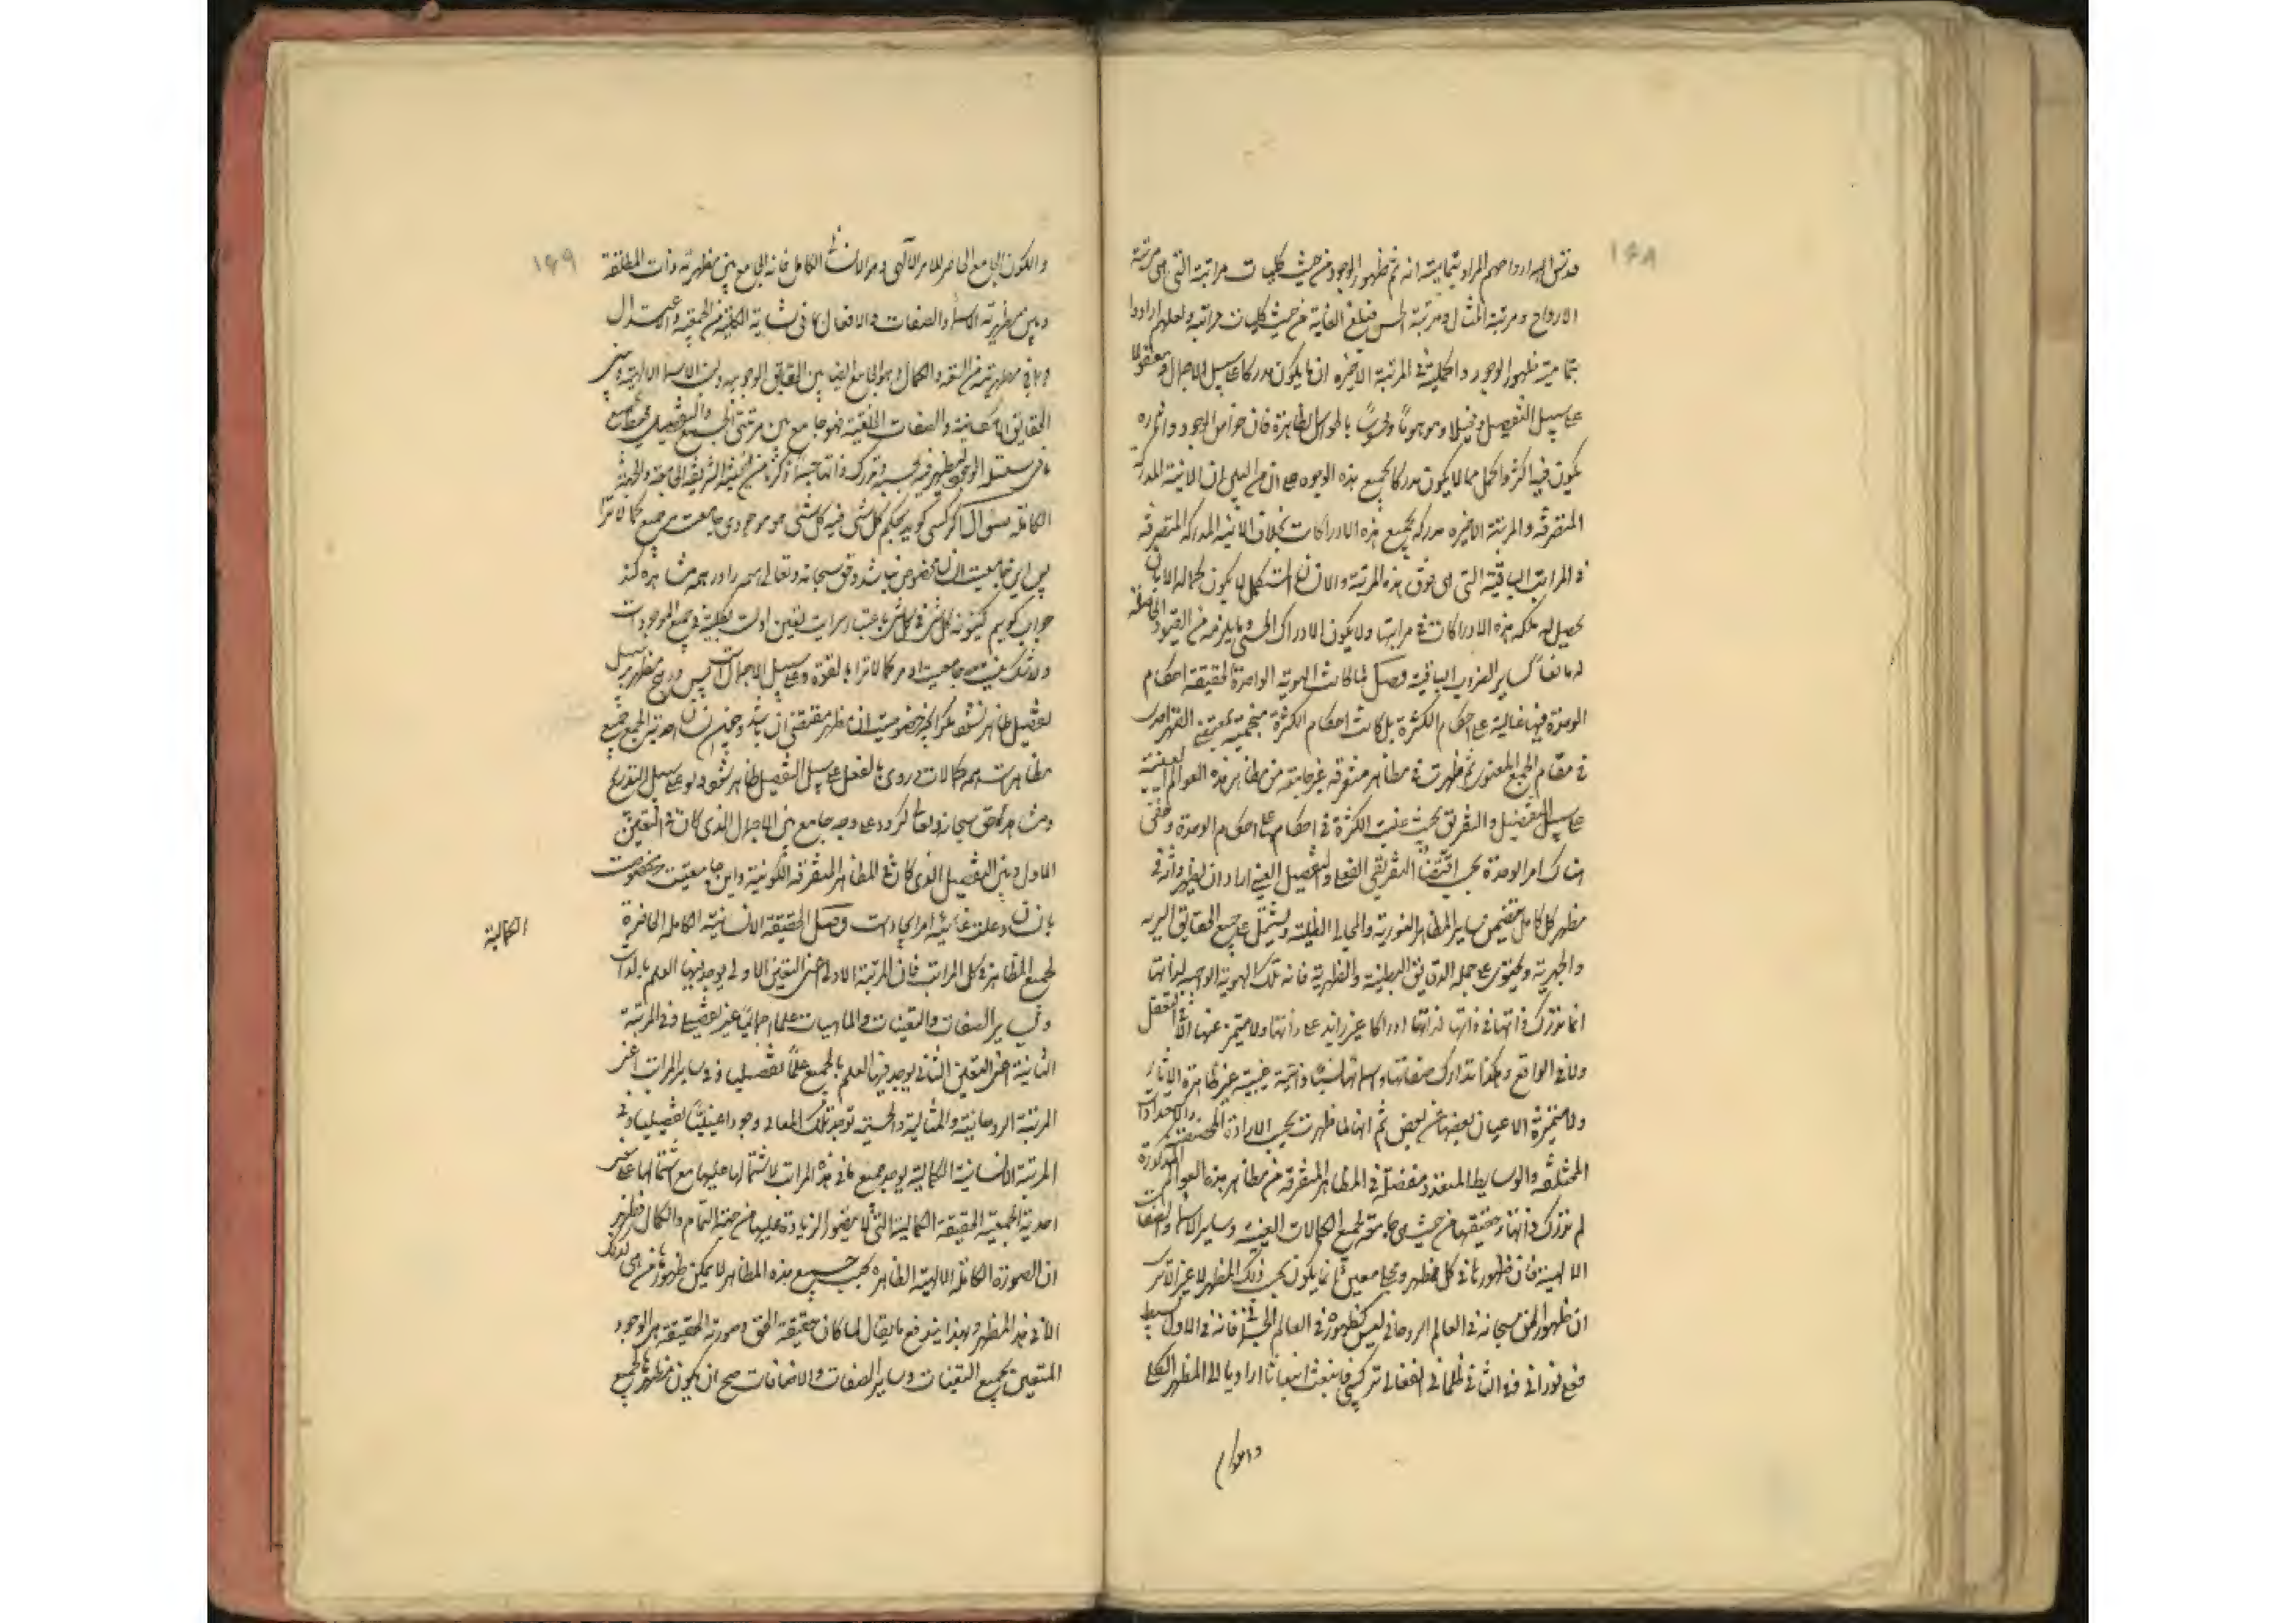 ١٤٨
قدس الله ارواحهم المراد بتمامية انه تم ظهور الوجود من حيث كليات مراتبه التي هي مرتبة
الارواح ومرتبة المثال ومرتبة الحس فبلغ الغاية من حيث كليات مراتبه ولعلهم ارادوا
بتمامية ظهور الوجود واكمليته في المرتبة الاخيرة ان ما يكون مدركا على سبيل الاجمال ومعقولا
على سبيل التفصيل ومخيلا وموهوما ومحسوسا بالحواس الظاهرة فان خواص الوجود واثاره
يكون فيه اكثر واكمل مما لا يكون مدركا بجميع هذه الوجوه على ان من البين ان الانية المدركة
المتفرقة والمرتبة الاخيرة مدركة بجميع هذه الادراكات بخلاف الانية المدركة المتصرفة
في المراتب الباقية التي هي فوق هذه المرتبة والانسان المستكمل لا يكون كماله الا بان
يحصل له ملكة هذه الادراكات في مراتبها ولا يكون الادراك الحسي وما يلزمه من القيود الخاصة
له مانعا كساير الضروب الباقية وصل لما كانت الهوية الواحدة الحقيقة احكام
الوحدة فيها غالبة على احكام الكثرة بل كانت احكام الكثرة منمحية بمقتضى القهر الاحدي
في مقام الجمع المعنوي ثم ظهرت في مظاهر متفرقة غير جامعة من مظاهر هذه العوالم العينية
على سبيل التفصيل والتفريق بحيث غلبت الكثرة في احكامها على احكام الوحدة وخفي
هناك امر الوحدة بحسب اقتضاء التفريقي الفعلي والتفصيل العيني اراد ان يظهر ذاته في
مظهر كل كامل يتضمن ساير المظاهر النورية والمجالي الظلية ويشتمل على جميع الحقايق السرية
والجهرية ويحتوي على جملة الدقايق البطنية والظهرية فانه تلك الهوية الواجبة لذاتها
انما تدرك ذاتها في ذاتها لذاتها ادراكا غير زايد على ذاتها ولا متميز عنها لا في التعقل
ولا في الواقع وهكذا تدارك صفاتها واسمائها نسبا ذاتية غيبية غير ظاهرة الاثار
ولا متميزة الاعيان بعضها عن بعض ثم انها لما ظهرت بحسب الارادة المخصصة والاستعدادات
المختلفة والوسايط المتعددة مفصلة في المظاهر المتفرقة من مظاهر هذه العوالم المذكورة
لم تدرك ذاتها وحقيقتها من حيث هي جامعة لجميع الكمالات العينية وساير الاسماء والصفات
الالهية فان ظهورها في كل مظهر ومجلى معين انما يكون بحسب ذلك المظهر لا غير الا ترى
ان ظهور الحق سبحانه في العالم الروحاني ليس كظهوره في العالم الجسماني فانه في الاول بسيط
فعلي نوراني وفي الثاني ظلماني انفعالي تركيبي فانبعث انبعاثا اراديا الى المظهر الكلي
والكون
١٤٩
والكون الجامع الحاصر للامر الالهي وهو الانسان الكامل فانه الجامع بين مظهرية ذات المطلقة
وبين مظهرية الاسماء والصفات والافعال لما في نشاته الكلية من الجمعية والاعتدال
وما في مظهريته من السعة والكمال وهو الجامع ايضا بين الحقايق الوجوبية ونسب الاسماء الالهية وبين
الحقايق الامكانية والصفات الخلقية فهو جامع بين مرتبتي الجمع والتفصيل محيط بجميع
ما في سلسلة الوجود لتظهر فيه بحسبه وتدرك ذاتها حسبما ذكرنا من الحيثية الشريفة الجامعة والجهة
الكاملة سؤال اگر کسی گوید بحکم کل شئ فیه کل شئ هر موجودی جامعست مر جمیع کمالات را
پس این جامعیت بانسان مخصوص نباشد وحق سبحانه وتعالی همه را در همه مشاهده کند
جواب گوییم کینونة کل شئ فی کل شئ باعتبار سرایت تعین اولست بکلیته فی جمیع الموجودات
ولا شک نیست جامعیت او مر کمالات را بالقوه وعلی سبیل الاجمالست پس در هیچ مظهر بر سبیل
تفصیل ظاهر نشود مگر آنکه خصوصیت ان مظهر مقتضی ان باشد وچون انسان احدیت جمع جمیع
مظاهر است همه کمالات در وی بالفعل علی سبیل التفصیل ظاهر شود ولو علی سبیل التدریج
ومشاهده حق سبحانه وتعالی کرده علی وجه جامع بین الاجمال الذی کان فی التعین
الاول وبین التفصیل الذی کان فی المظاهر المتفرقة الکونیة واین جامعیت مخصوصست
بانسان وعلت غائیه امر ایجاد است وصل الحقيقة الانسانية الكاملة الحاضرة
لجميع المظاهر في كل المراتب فان المرتبة الاولى اعني التعين الاول يوجد فيها العلم بالذات
وبساير الصفات والتعينات والماهيات علما اجماليا غير تفصيلي وفي المرتبة
الثانية اعني التعين الثاني يوجد فيها العلم بالجميع علما تفصيليا وفي ساير المراتب اعني
المرتبة الروحانية والمثالية والحسية توجد تلك المعاني وجودا عينيا تفصيليا وفي
المرتبة الانسانية الكمالية يوجد جميع ما في هذه المراتب لاشتمالها عليها مع اشتمالها على سر
احدية الجمعية الحقيقة الكمالية التي لا يتصور الزيادة عليها من جهة التمام والكمال فظهر
ان الصورة الكاملة الالهية الظاهرة بحسب جميع هذه المظاهر لا يمكن ظهورها من هي كذلك
الا في هذا المظهر وبهذا يندفع ما يقال لما كان حقيقة الحق وصورته الحقيقة هي الوجود
المتعين بجميع التعينات وساير الصفات والاضافات صح ان يكون مظهرها الجميع
الكمالية